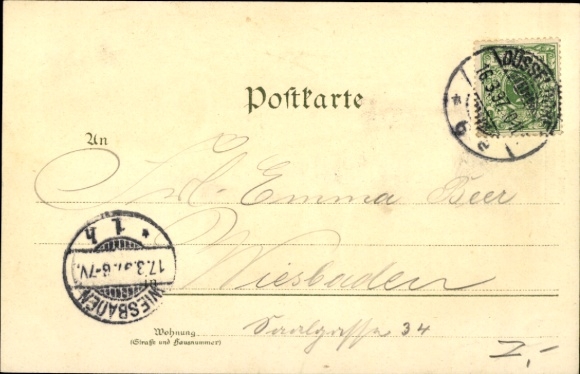 DÜSSELDORF
16.3.97
* 9
Postkarte
An
Frl. Emma Beer
Wiesbaden
* 1. h
17.3.97. 6-7V.
WIESBADEN
Wohnung
(Straße und Hausnummer)
Saalgasse 34
2,-